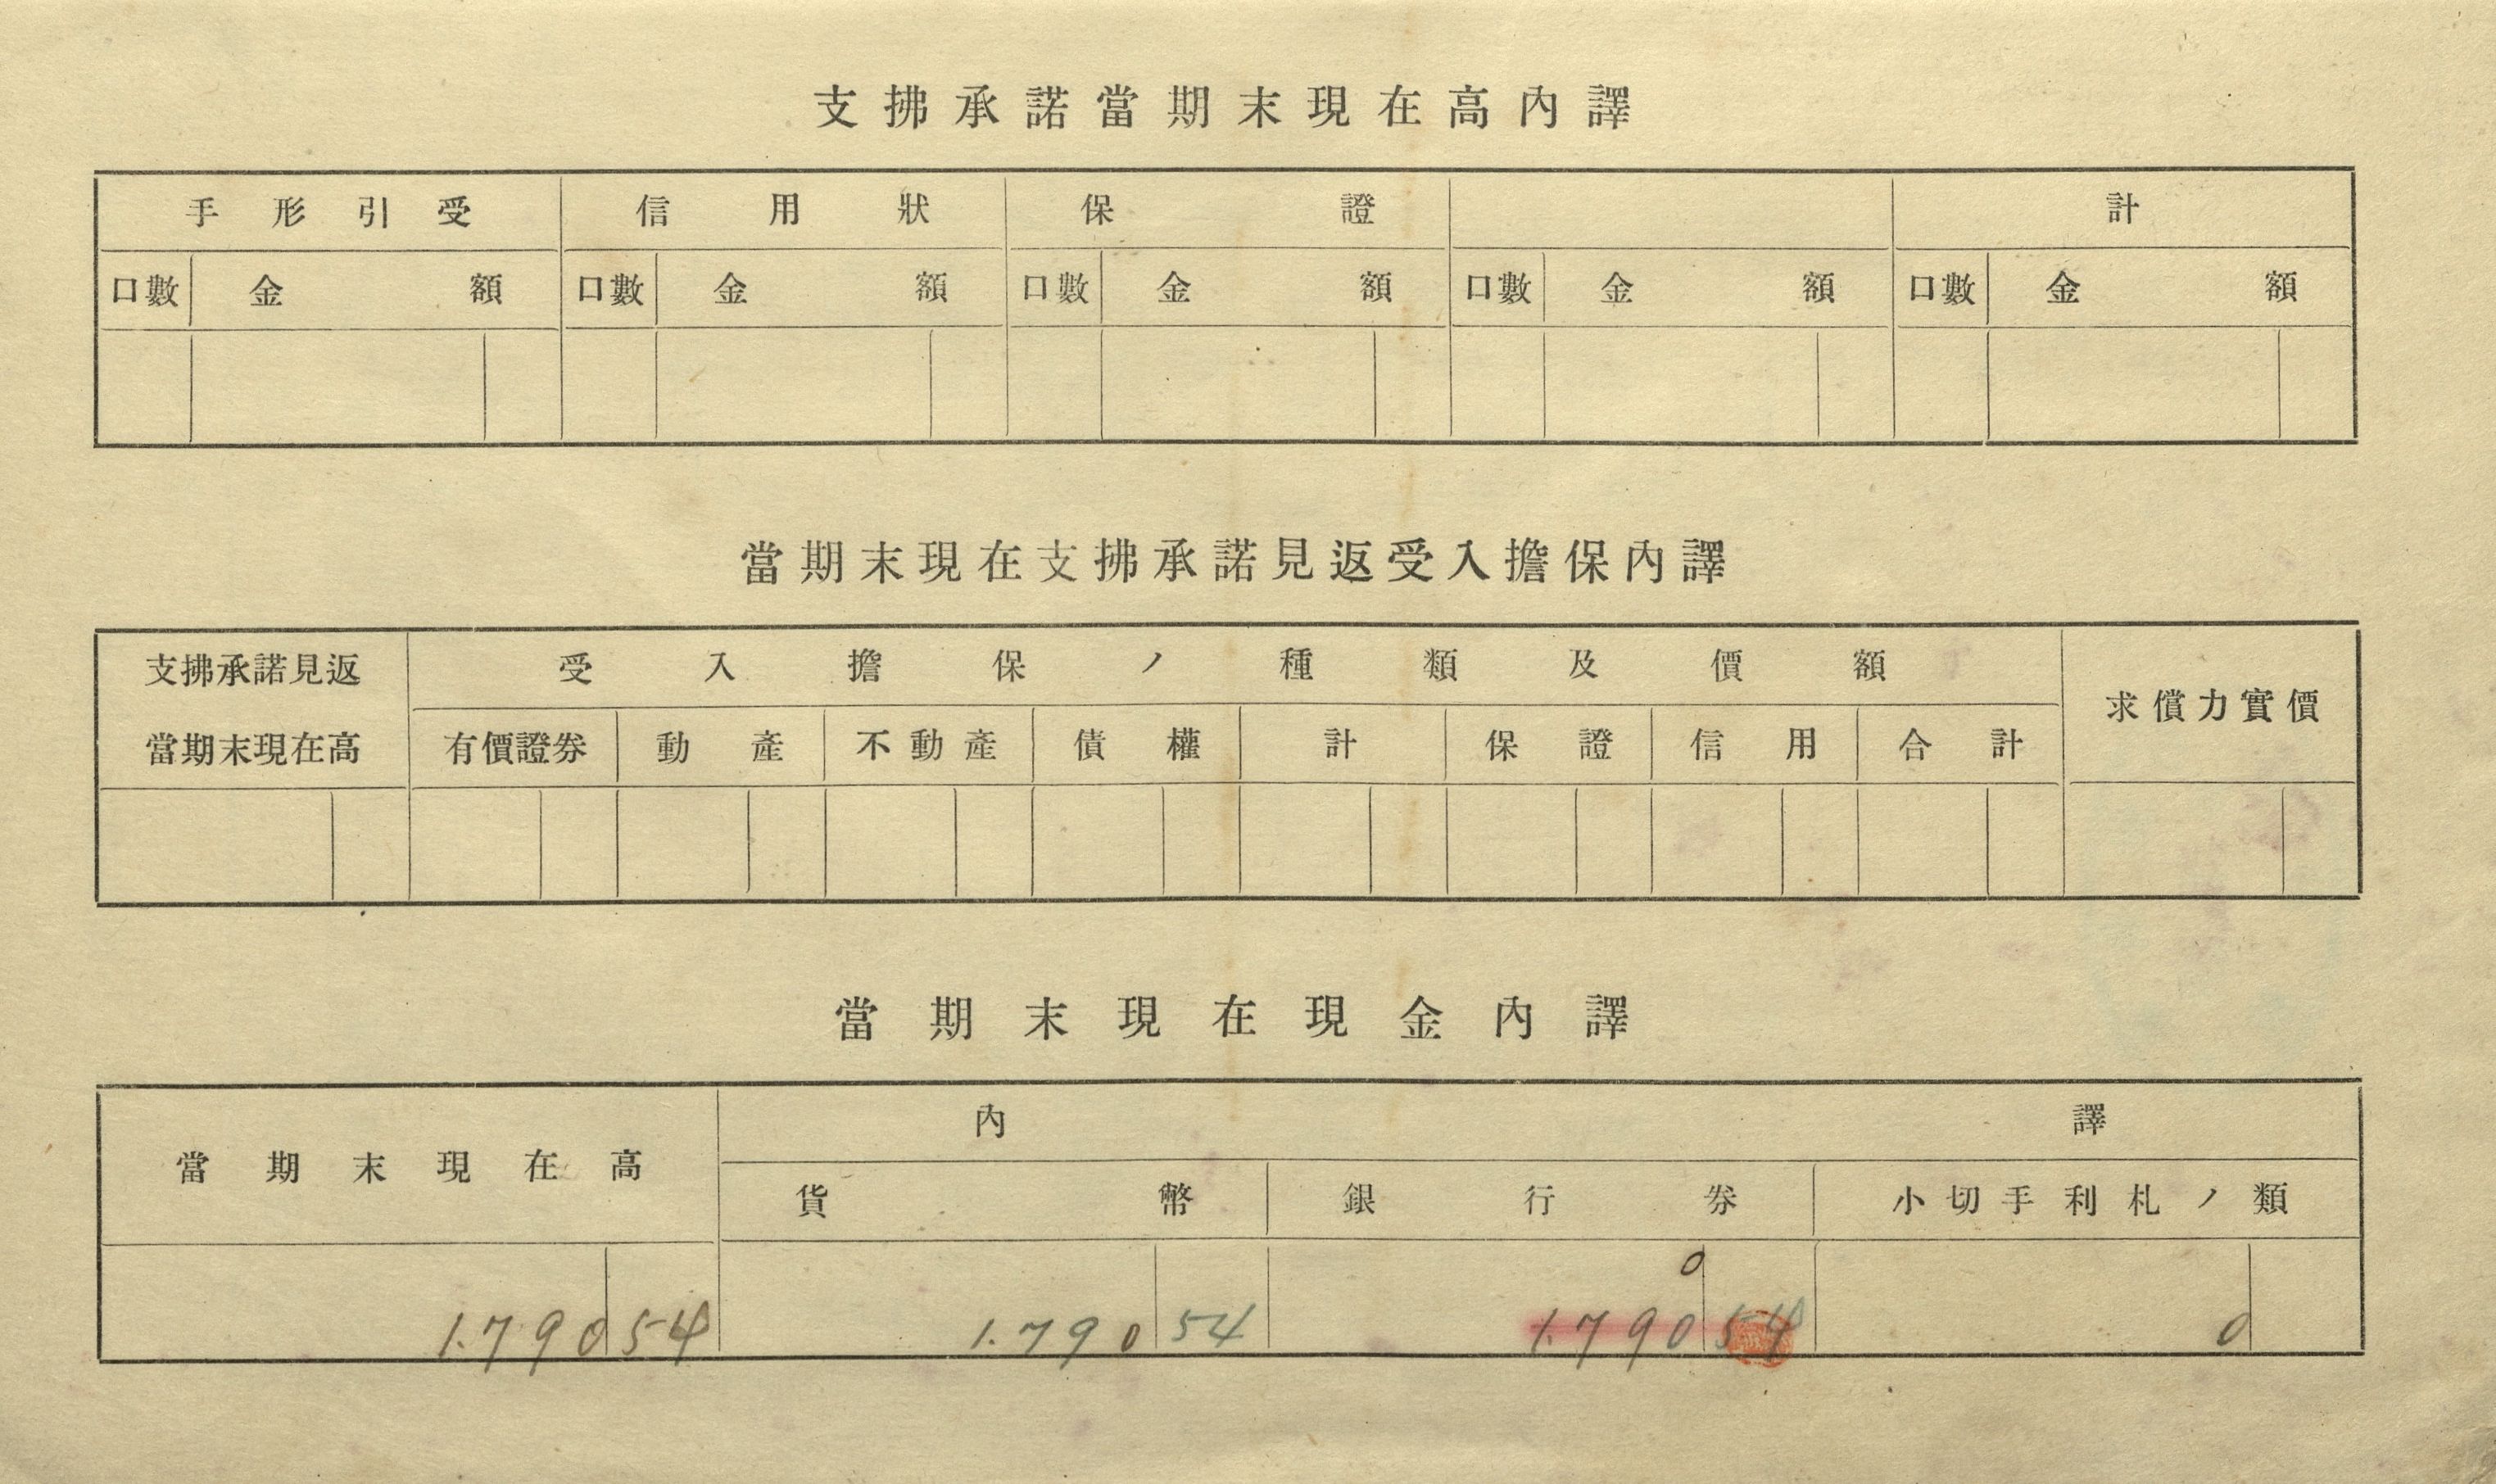 支拂承諾當期末現在高內譯
手形引受 信用狀 保證 計
口數 金額 口數 金額 口數 金額 口數 金額 口數 金額
當期末現在支拂承諾見返受入擔保內譯
支拂承諾見返 受入擔保ノ種類及價額 求償力實價
當期末現在高 有價證券 動產 不動產 債權 計 保證 信用 合計
當期末現在現金內譯
當期末現在高 內譯
貨幣 銀行券 小切手利札ノ類
0
1.790 54 1.790 54 1.790 54 0